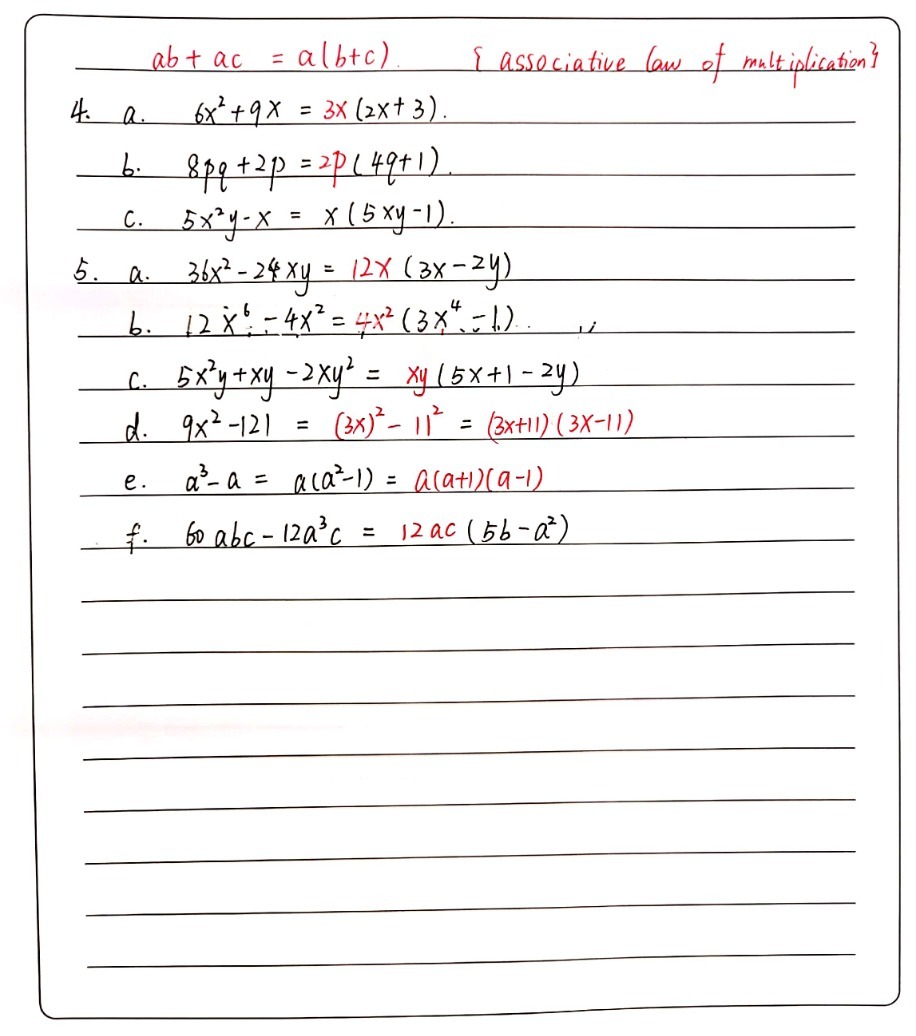 ab + ac = a(b+c). { associative law of multiplication}
4. a. 6x² + 9x = 3x (2x + 3).
b. 8pq + 2p = 2p (4q+1).
c. 5x²y - x = x (5xy - 1).
5. a. 36x² - 24xy = 12x (3x - 2y)
b. 12x⁶ - 4x² = 4x² (3x⁴ - 1).
c. 5x²y + xy - 2xy² = xy (5x + 1 - 2y)
d. 9x² - 121 = (3x)² - 11² = (3x+11) (3x-11)
e. a³ - a = a(a²-1) = a(a+1)(a-1)
f. 60abc - 12a³c = 12ac (5b - a²)